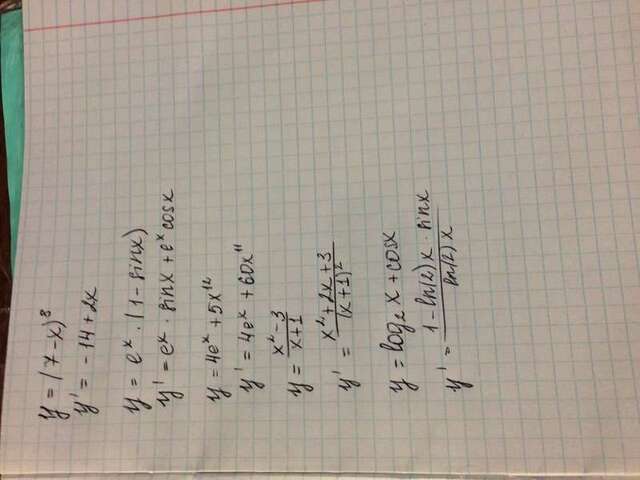 y = (7-x)⁸
y' = -14+2x
y = eˣ · (1-sinx)
y' = eˣ · sinx + eˣ cosx
y = 4eˣ + 5x¹²
y' = 4eˣ + 60x¹¹
y = (x²-3)/(x+1)
y' = (x²+2x+3)/(x+1)²
y = log₂x + cosx
y' = (1-ln(2)x · sinx)/(ln(2)x)